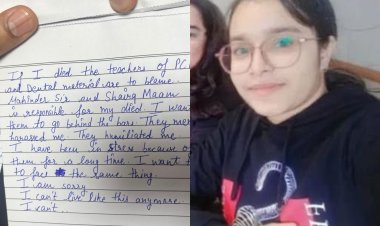 If I died the teachers of PC
and Dental material are to blame
Mahinder Sir and Shairg Maam
is responsible for my died I want
them to go behind the bars They men
harassed me They humiliated me
I have been in stress because o
them for a long time. I want t
to face the same thing.
I am sorry
I can't live like this anymore
I cant...